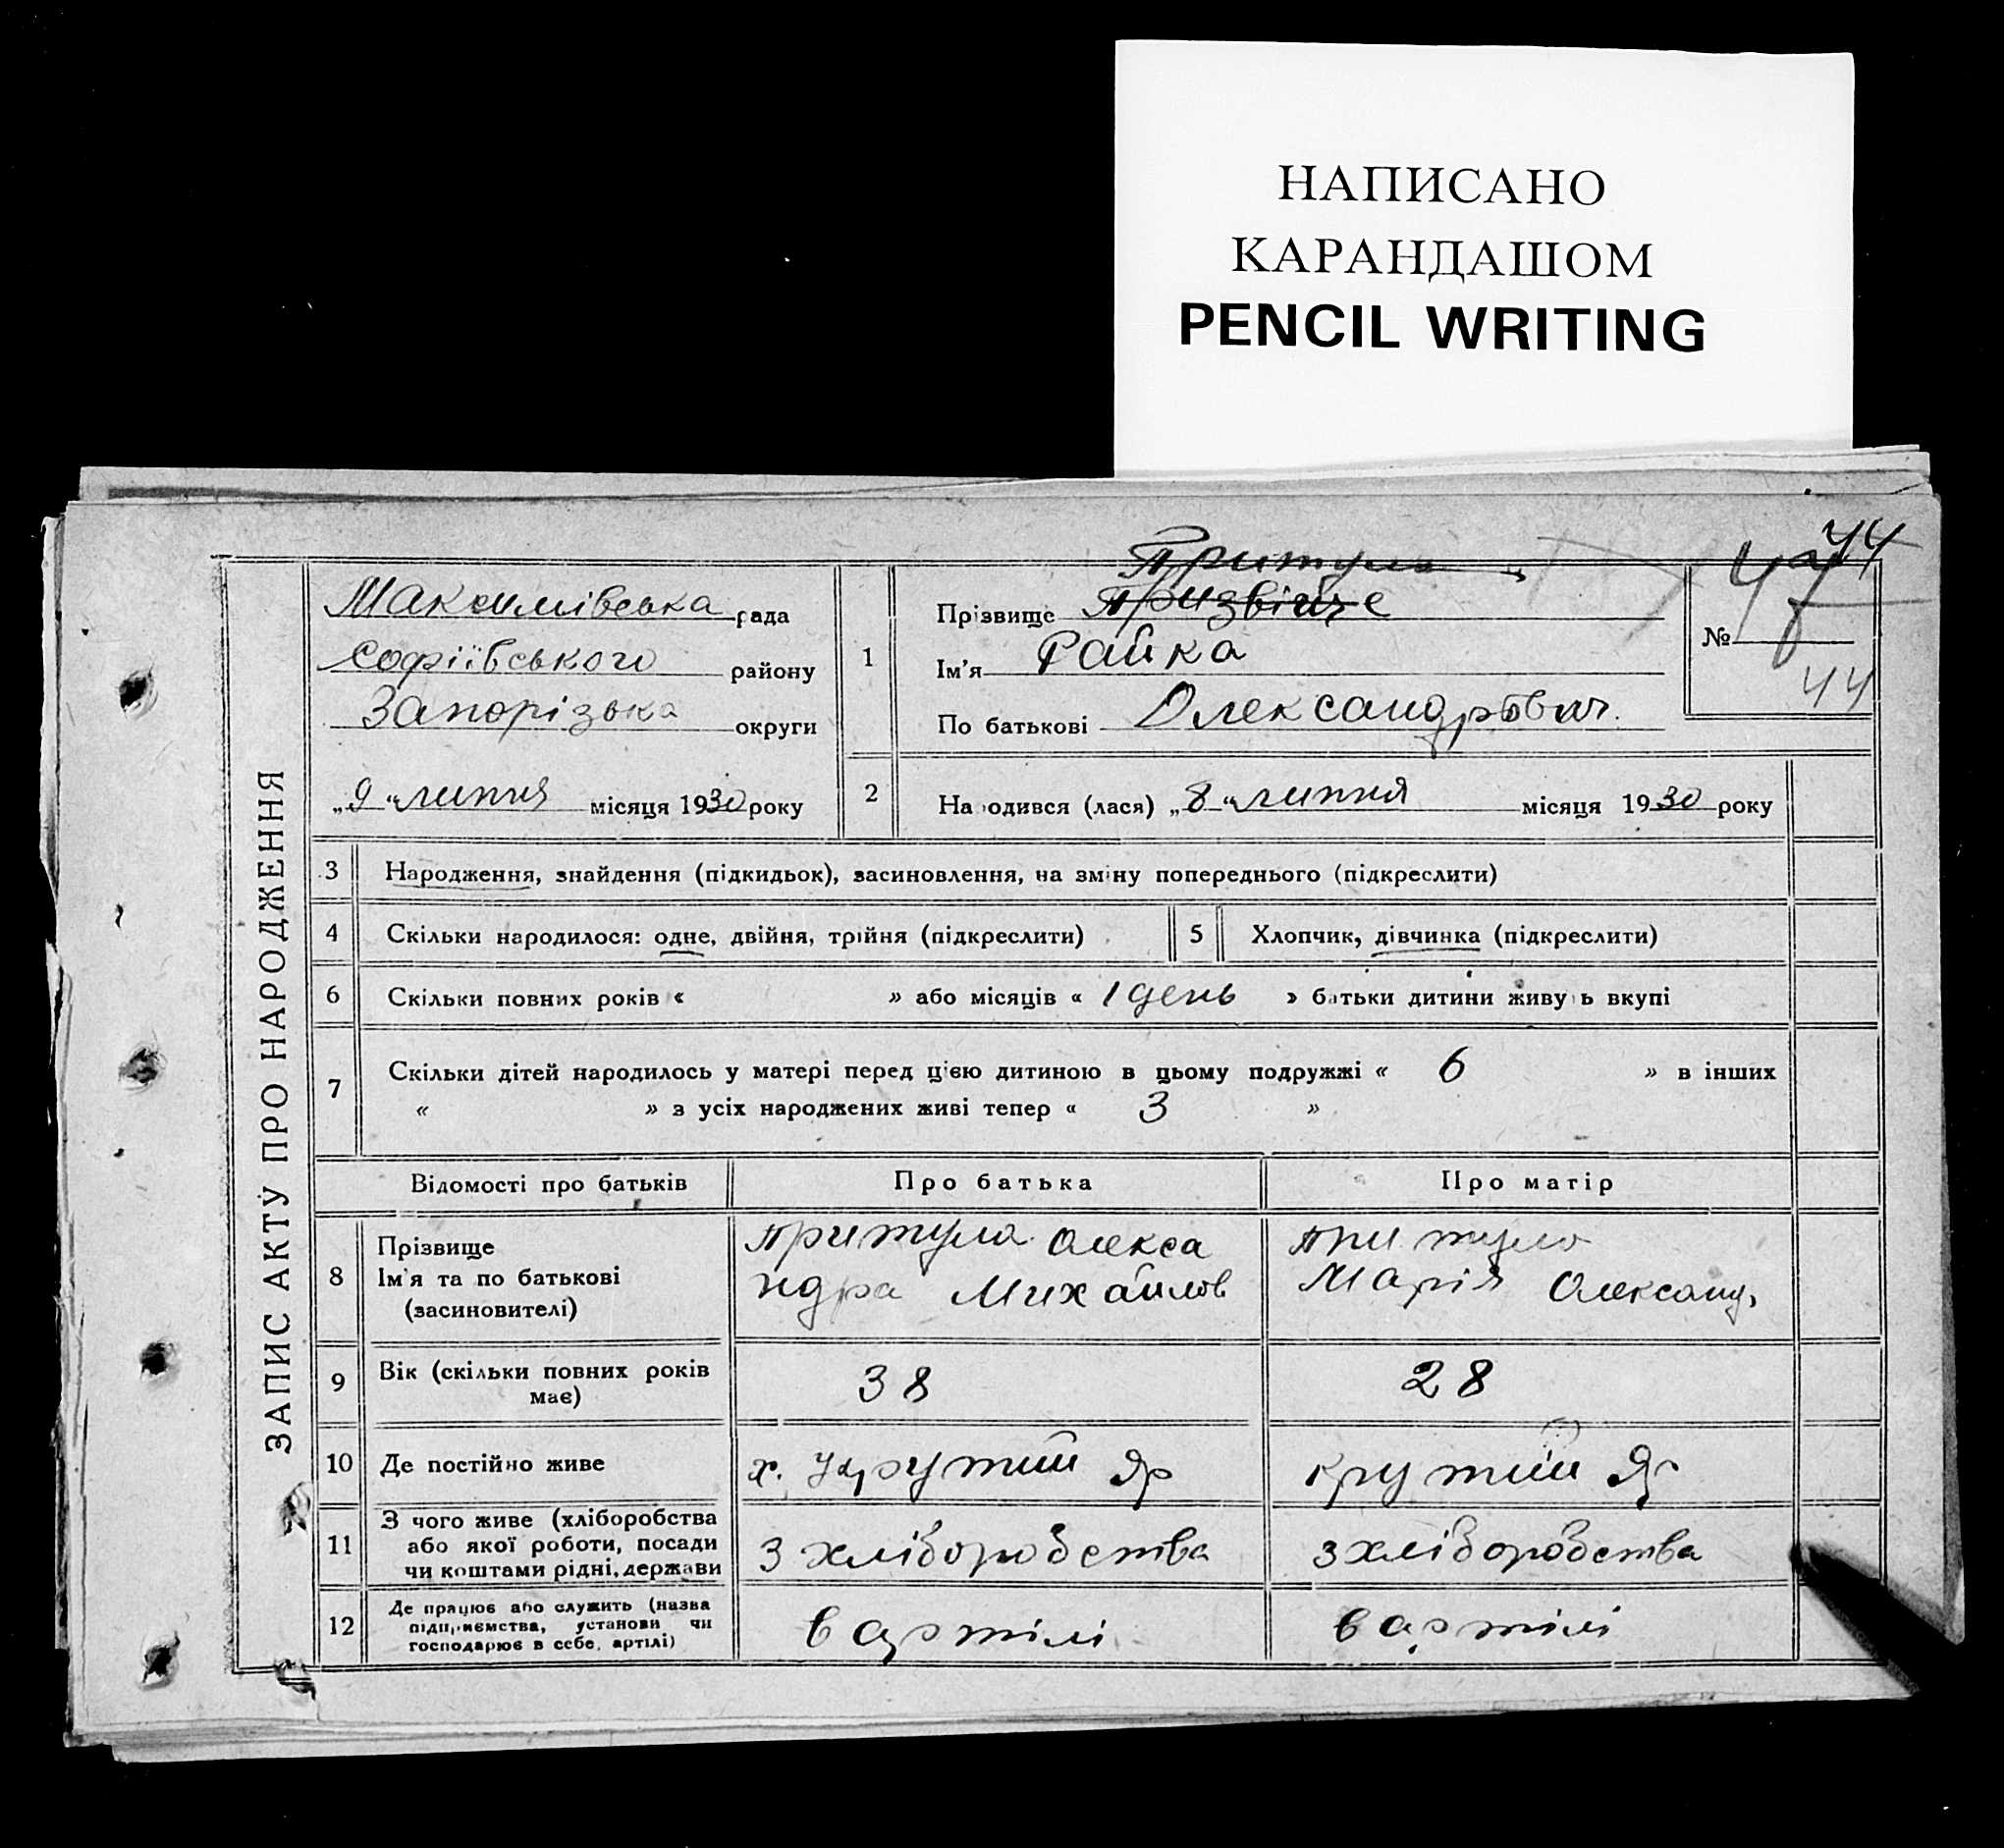 НАПИСАНО
КАРАНДАШОМ
PENCIL WRITING
ЗАПИС АКТУ ПРО НАРОДЖЕННЯ
Максимівська рада
Софіївського району
Запорізька округи
„9“ липня місяця 1930 року
1
Притула
Прізвище Призвіще
Ім'я Райка
По батькові Олександрович.
44
№ 47
44
2 На одився (лася) „8“ липня місяця 1930 року
3 Народження, знайдення (підкидьок), засиновлення, на зміну попереднього (підкреслити)
4 Скільки народилося: одне, двійня, трійня (підкреслити) 5 Хлопчик, дівчинка (підкреслити)
6 Скільки повних років « » або місяців « 1 день » батьки дитини живу ь вкупі
7 Скільки дітей народилось у матері перед цією дитиною в цьому подружжі « 6 » в інших
« » з усіх народжених живі тепер « 3 »
Відомості про батьків Про батька Про матір
8 Прізвище
Ім'я та по батькові
(засиновителі)
Притула Олекса
ндра Михайлов
Притула
Марія Олександ,
9 Вік (скільки повних років
має)
38 28
10 Де постійно живе х. Крутий Яр Крутий Яр
11 З чого живе (хліборобства
або якої роботи, посади
чи коштами рідні, держави
З хліборобства З хліборобства
12 Де працює або служить (назва
підприємства, установи чи
господарює в себе, артілі)
в артілі в артілі